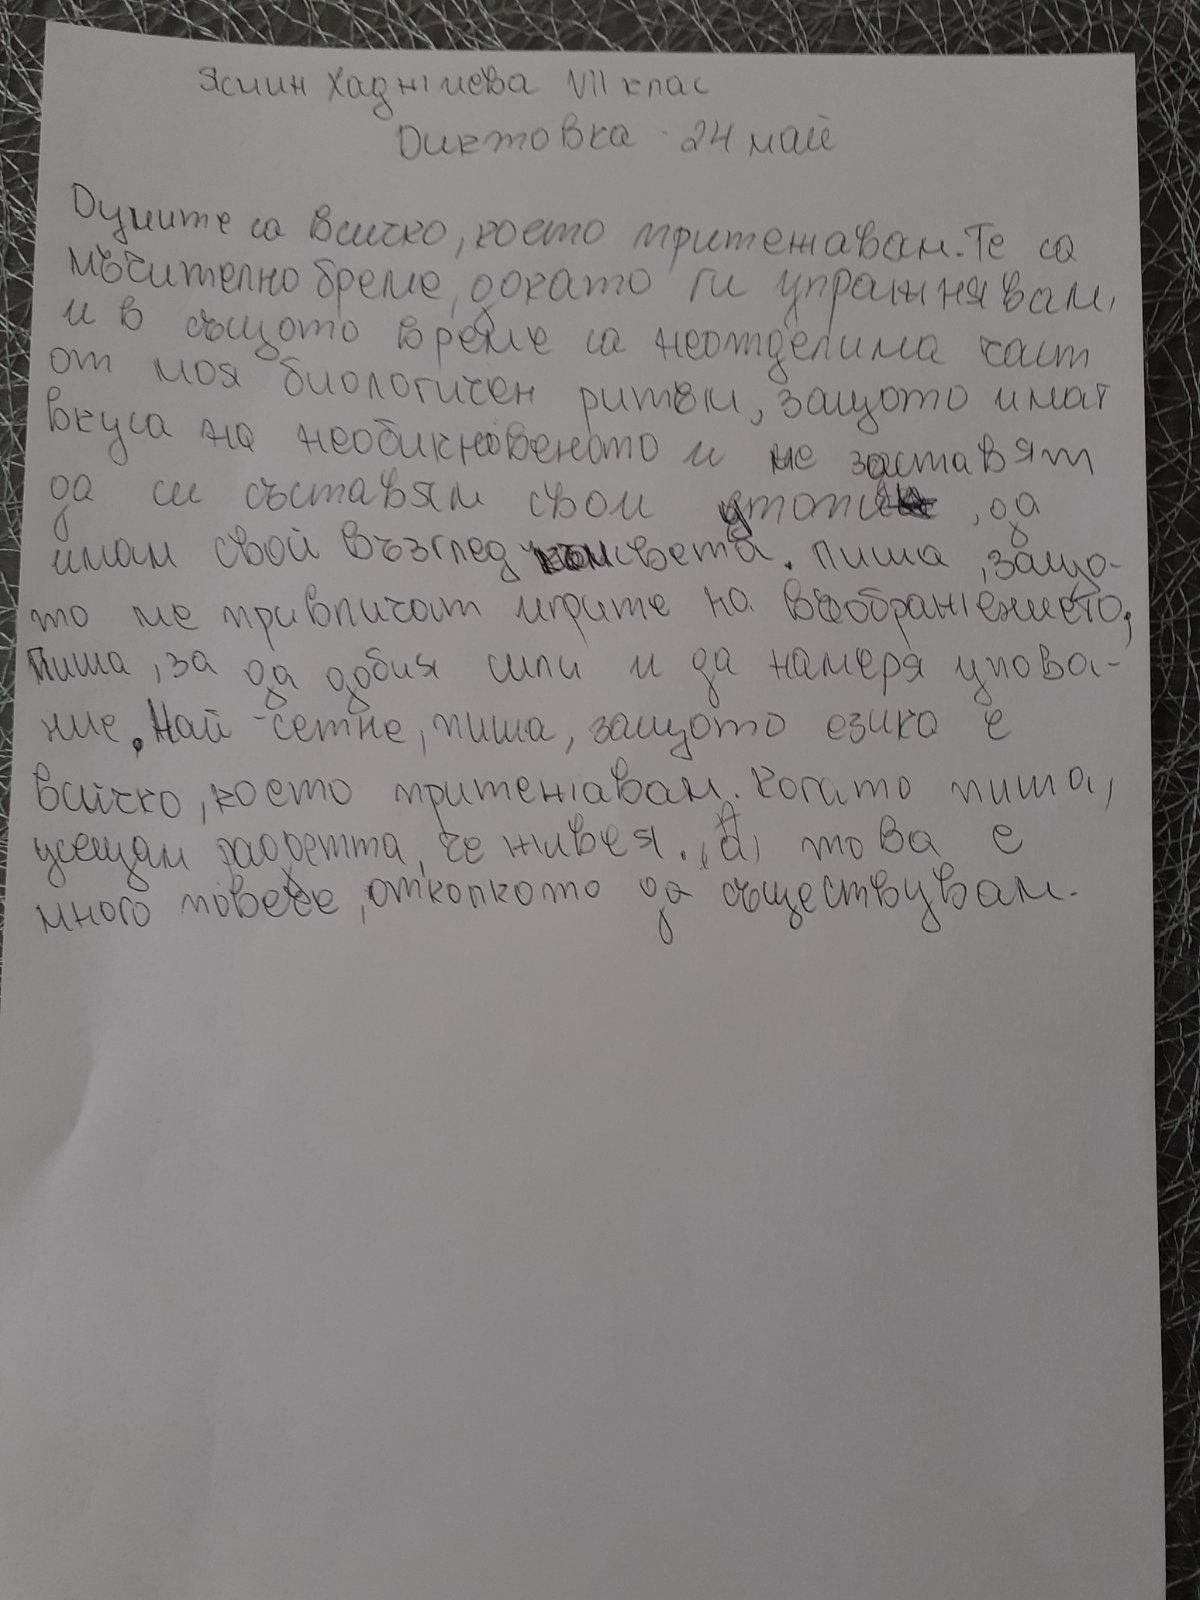 Ясмин Хаджиева VII клас
Диктовка - 24 май
Думите са всичко, което притежавам. Те са
мъчително бреме, докато ги упражнявам,
и в същото време са неотделима част
от моя биологичен ритъм, защото имат
вкуса на необикновеното и ме заставят
да си съставям свои утопии, да
имам свой възглед света. Пиша, защо-
то ме привличат игрите на въображението,
Пиша, за да добия сили и да намеря упова-
ние. Най-сетне, пиша, защото езика е
всичко, което притежавам. Когато пиша,
усещам, че живея. А това е
много повече, отколкото да съществувам.